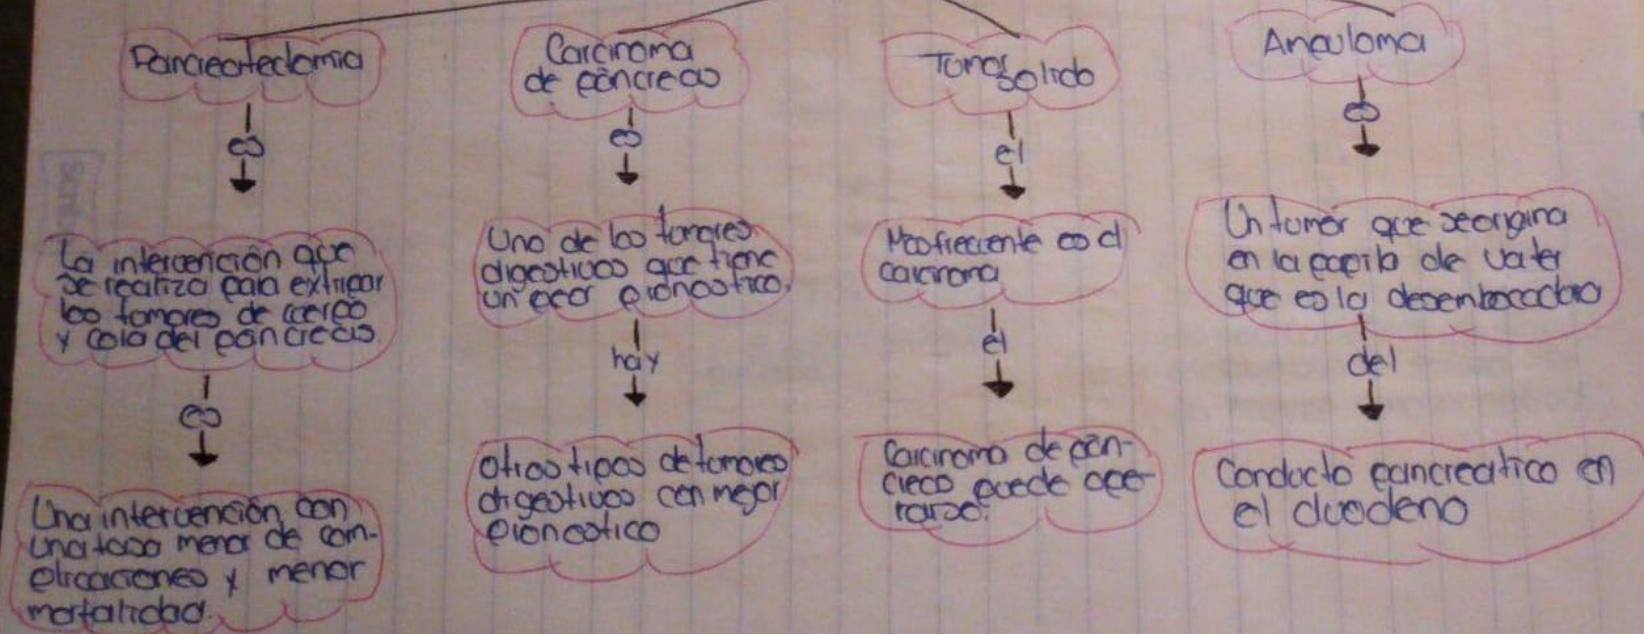 Pancreatectomia
es
La intervención que
se realiza para extirpar
los tumores de cuerpo
y cola del páncreas.
es
Una intervención con
una tasa menor de com-
plicaciones y menor
mortalidad.
Carcinoma
de páncreas
es
Uno de los tumores
digestivos que tiene
un peor pronostico.
hay
Otros tipos de tumores
digestivos con mejor
pronostico
Tumor
Solido
el
Mas frecuente es el
carcinoma
el
Carcinoma de pán-
creas puede ope-
rarse.
Ampuloma
es
Un tumor que se origina
en la papila de vater
que es la desembocadura
del
Conducto pancreatico en
el duodeno